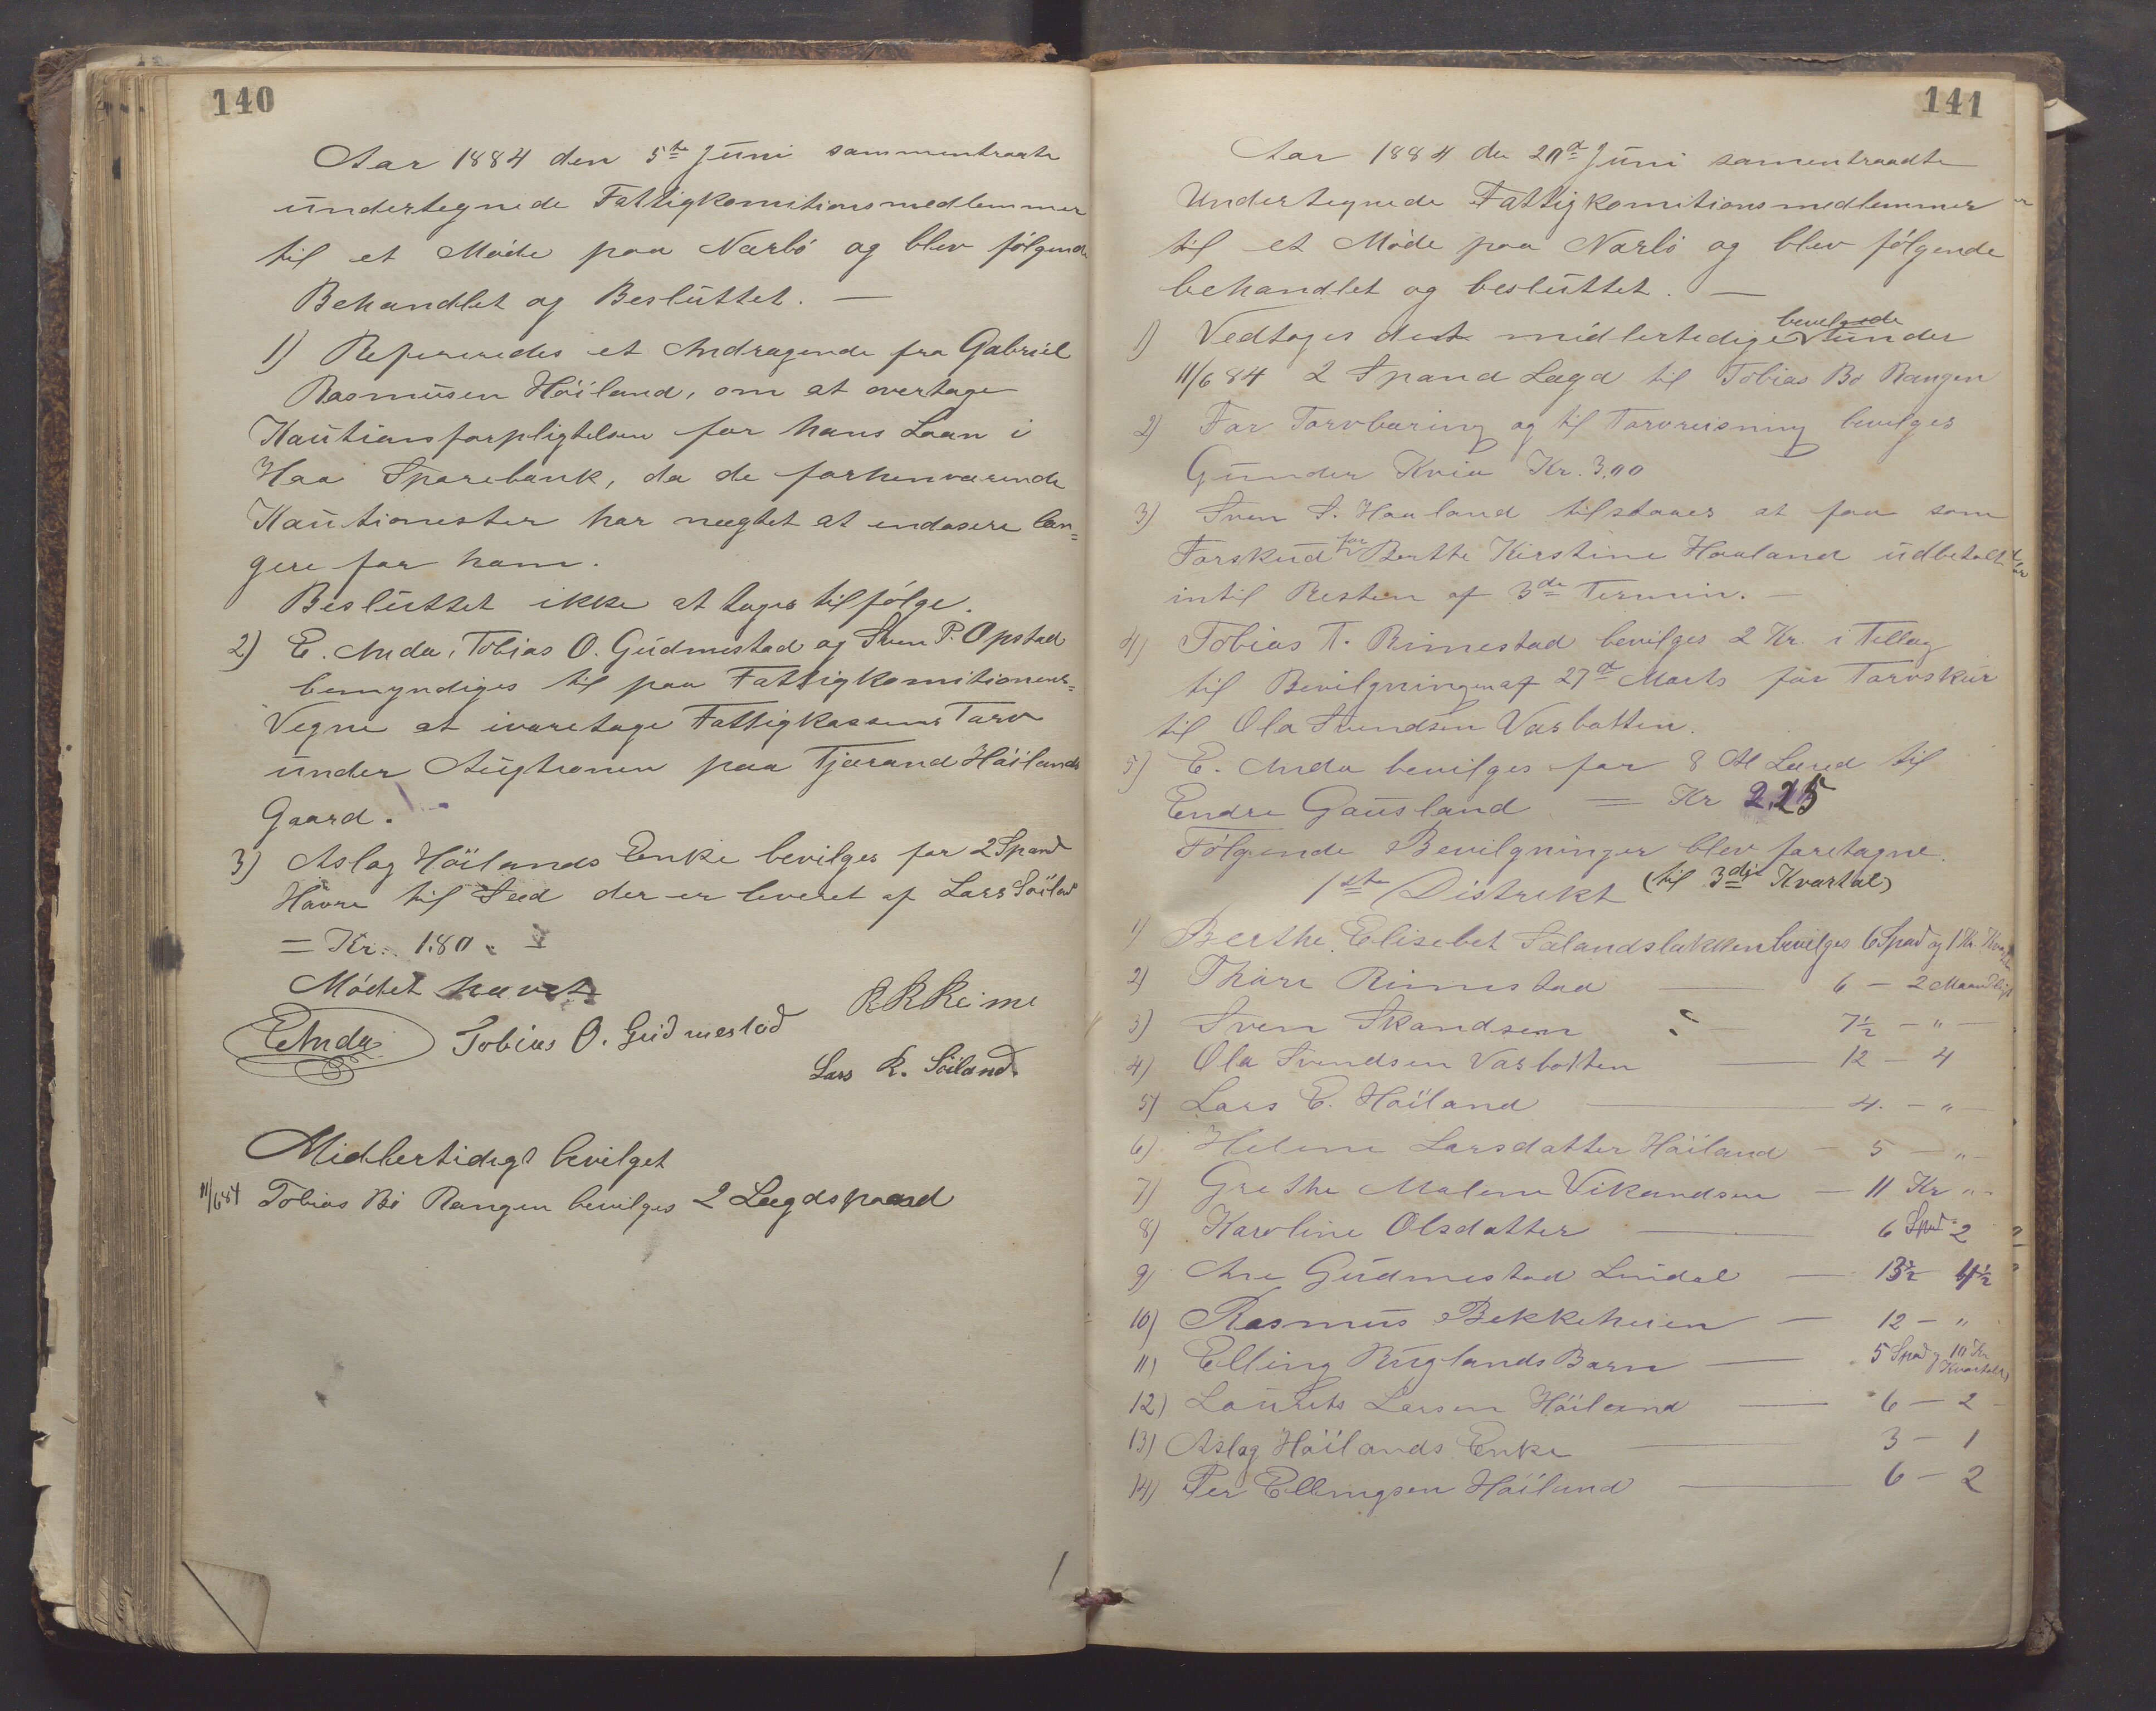 140
Aar 1884 den 5te Juni sammentraate
undertegnede Fattigkomitionsmedlemmer
til et Møde paa Nærbø og blev følgende
Behandlet og Besluttet. —
1) Refereredes et Andragende fra Gabriel
Rasmusen Höiland, om at overtage
Kautionsforpligtelsen for hans Laan i
Haa Sparebank, da de forhenværende
Kautionister har nægtet at endosere læn=
gere for ham.
Besluttet ikke at tages tilfølge.
2) E. Anda, Tobias O. Gudmestad og Sven P. Opstad
bemyndiges til paa Fattigkomitionens=
Vegne at ivaretage Fattigkassens Tarv
under Augtionen paa Tjærand Höilands
Gaard.
3) Aslag Höilands Enke bevilges for 2 Spand
Havre til Sæd der er leveret af Lars Söiland
= Kr. 1.80
Mödet hævet
R R Reime
E Anda Tobias O. Gudmestad
Lars R. Söiland.
Midlertidigt bevilget
11/6 84 Tobias Bö Rangen bevilges 2 Lægdspand
141
Aar 1884 de 20de Juni samentraadte
Undertegnede Fattigkomitionsmedlemmer
til et Møde paa Nærbø og blev følgende
behandlet og besluttet. —
1) Vedtages det midlertedige bevelgede under
11/6 84 2 Spand Lægd til Tobias Bø Rangen
2) For Torvbæring og til Torvreisning bevilges
Gunder Kvia Kr. 3,00
3) Sven S. Haaland tilstaaes at faa som
Forskud for Berthe Kirstine Haaland udbetalt
intil Resten af 3de Termin. —
4) Tobias T. Rimestad bevilges 2 Kr. i Tillæg
til Bevilgningen af 27de Marts for Torvskur
til Ola Svendsen Varbatten.
5) E. Anda bevilges for 8 Al Lærred til
Endre Gausland = Kr 2,25
Følgende Bevilgninger blev foretagne.
1ste Distrikt (til 3die Kvartal)
1) Berthe Elisebet Sælandsbakken bevilges 6 Spad og 1 Kr.
2) Thore Rimestad — 6 — 2 Maandligt
3) Sven Skandsen — 7½ — " —
4) Ola Svendsen Varbotten — 12 — 4
5) Lars E. Höiland — 4. — " —
6) Helene Larsdatter Höiland — 5 — " —
7) Grethe Malene Vikandsen — 11 Kr " —
8) Karoline Olsdatter — 6 Spad 2
9) Ane Gudmestad Lindal — 13½ 4½
10) Rasmus Bekkeheien — 12 — "
11) Elling Ruglands Barn — 5 Spad og 10 Kr Kvartalet
12) Laurits Larsen Höiland — 6 — 2
13) Aslag Höilands Enke — 3 — 1
14) Per Ellingsen Höiland — 6 — 2